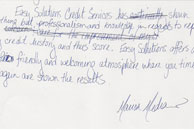 Easy Solutions Credit Services has shown
nothing but professionalism and knowledge in regards to rep
credit history and thus score. Easy Solutions offers a
friendly and welcoming atmosphere when you
again are shown the results.